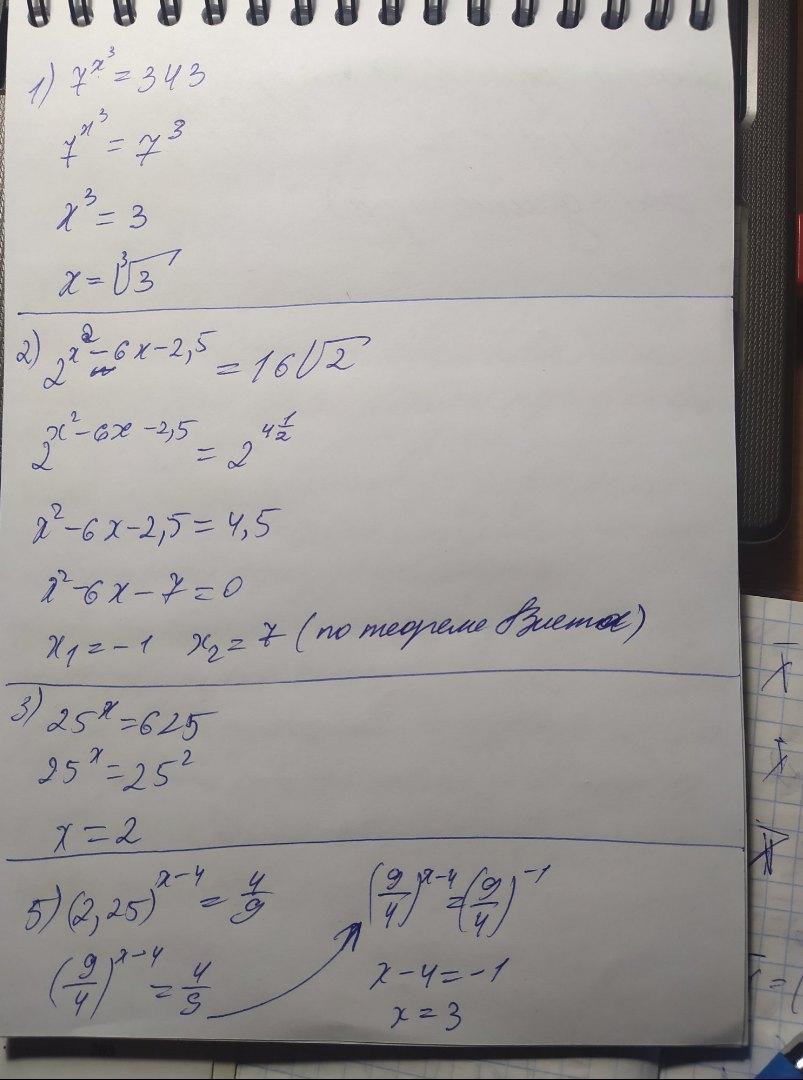 1) 7^{x^3} = 343
7^{x^3} = 7^3
x^3 = 3
x = ∛3
2) 2^{x^2-6x-2,5} = 16√2
2^{x^2-6x-2,5} = 2^{4\frac{1}{2}}
x^2-6x-2,5 = 4,5
x^2-6x-7=0
x_1 = -1 x_2 = 7 (по теореме Виета)
3) 25^x = 625
25^x = 25^2
x = 2
5) (2,25)^{x-4} = 4/9
(9/4)^{x-4} = 4/9
(9/4)^{x-4} = (9/4)^{-1}
x-4 = -1
x = 3